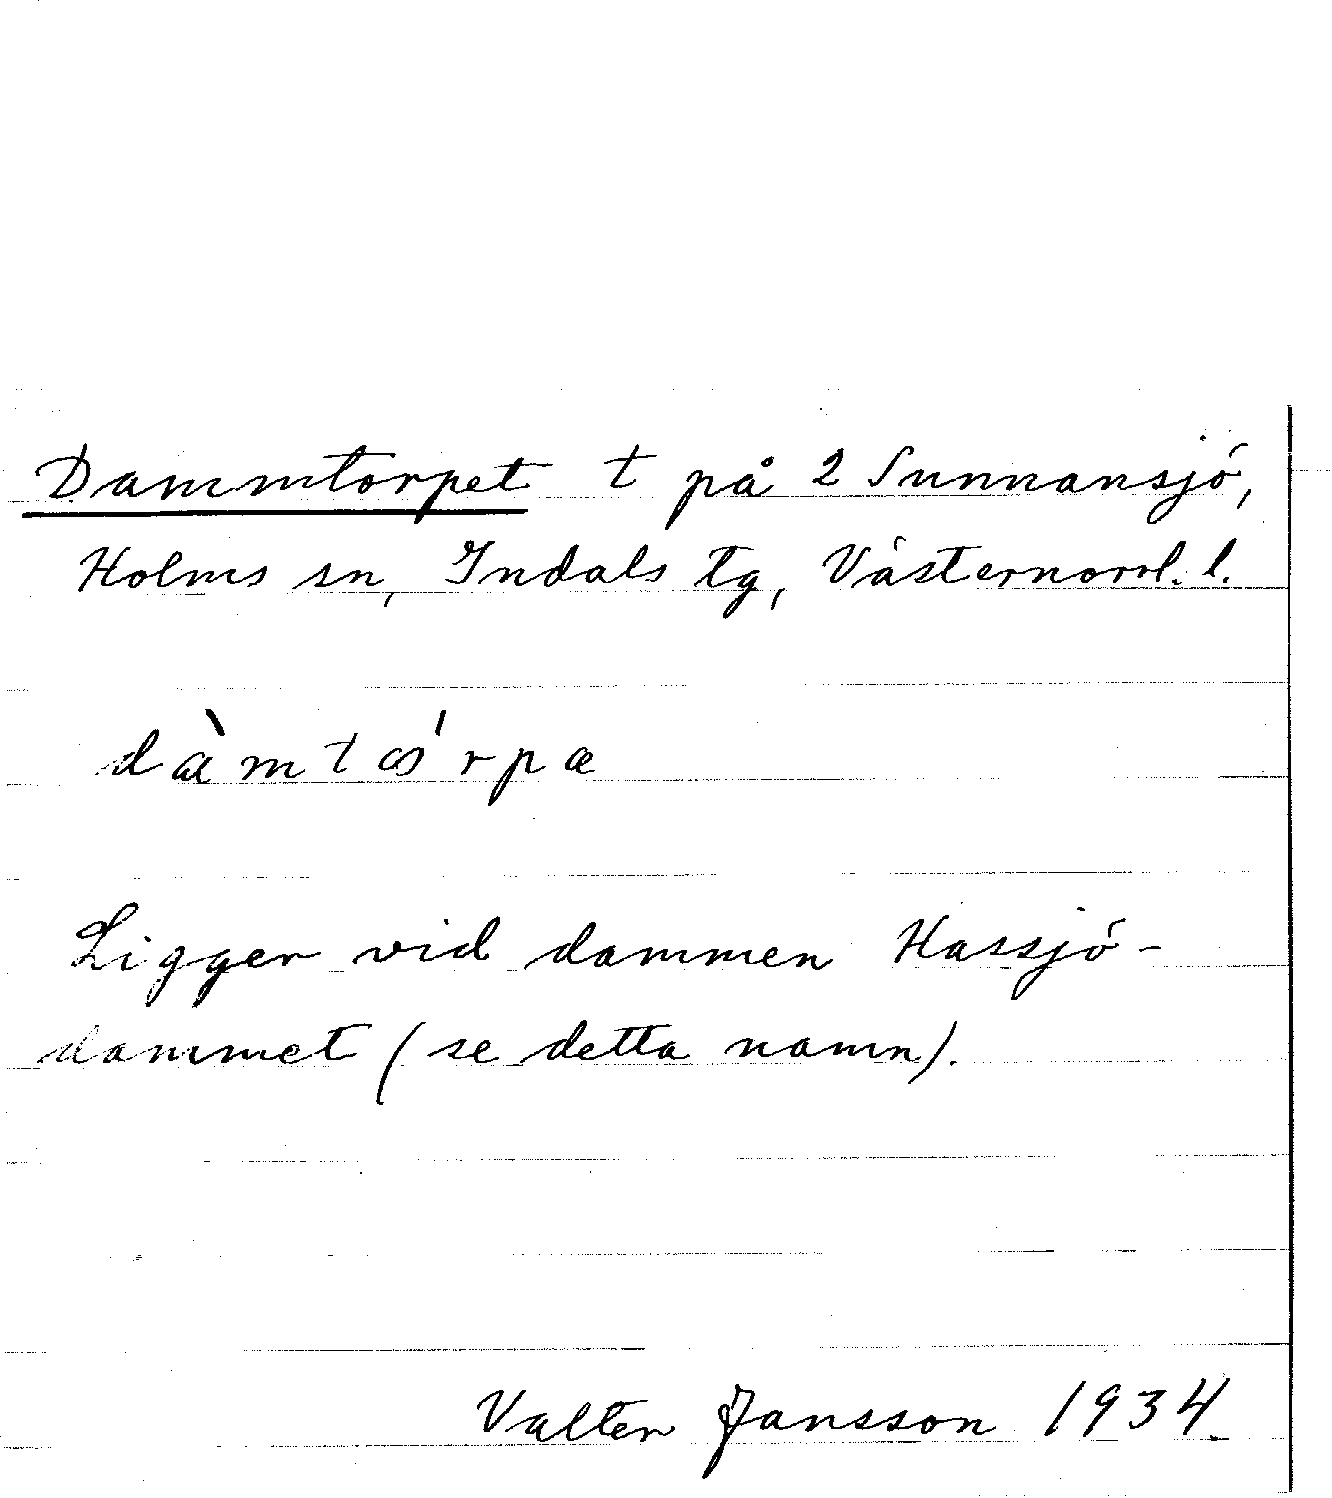 Dammtorpet t på 2 Sunnansjö,
Holms sn, Indals tg, Västernorrl. l.
dàmtɷ́rpa
Ligger vid dammen Hassjö-
dammet (se detta namn).
Valter Jansson 1934